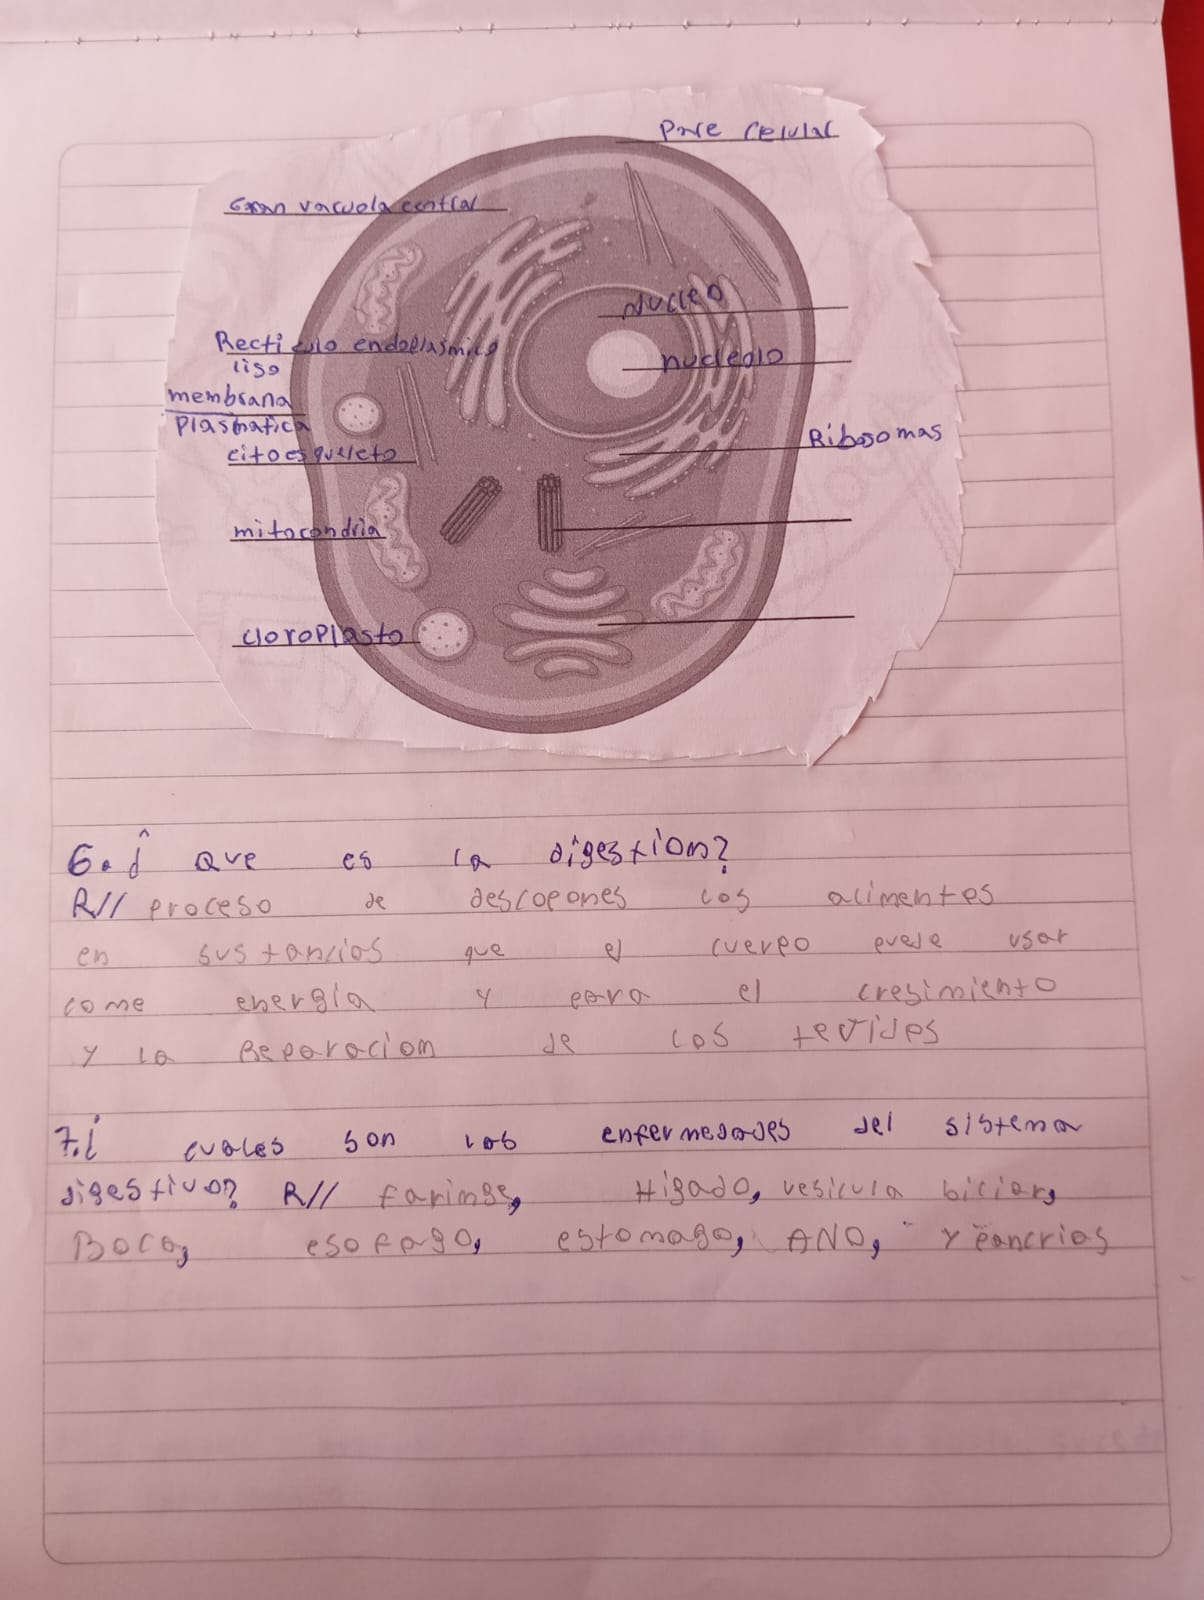 Pare celular
Gran vacuola central
Nucleo
Recticulo endoplasmico
liso
nucleolo
membrana
Plasmatica
Ribosomas
citoesqueleto
mitocondria
cloroplasto
6. ¿ Que es la digestion?
R// proceso de descopones los alimentos
en sustancias que el cuerpo puede usar
come energia y para el cresimiento
y la Reparaciom de los tevides
7.¿ cuales son las enfermedades del sistema
digestivo? R// faringe, Higado, vesicula biciar,
Boca, esofago, estomago, ANO, y pancrias